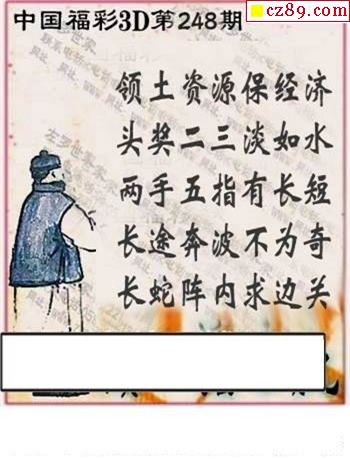 cz89.com
中国福彩3D第248期
领土资源保经济
头奖二三淡如水
两手五指有长短
长途奔波不为奇
长蛇阵内求边关